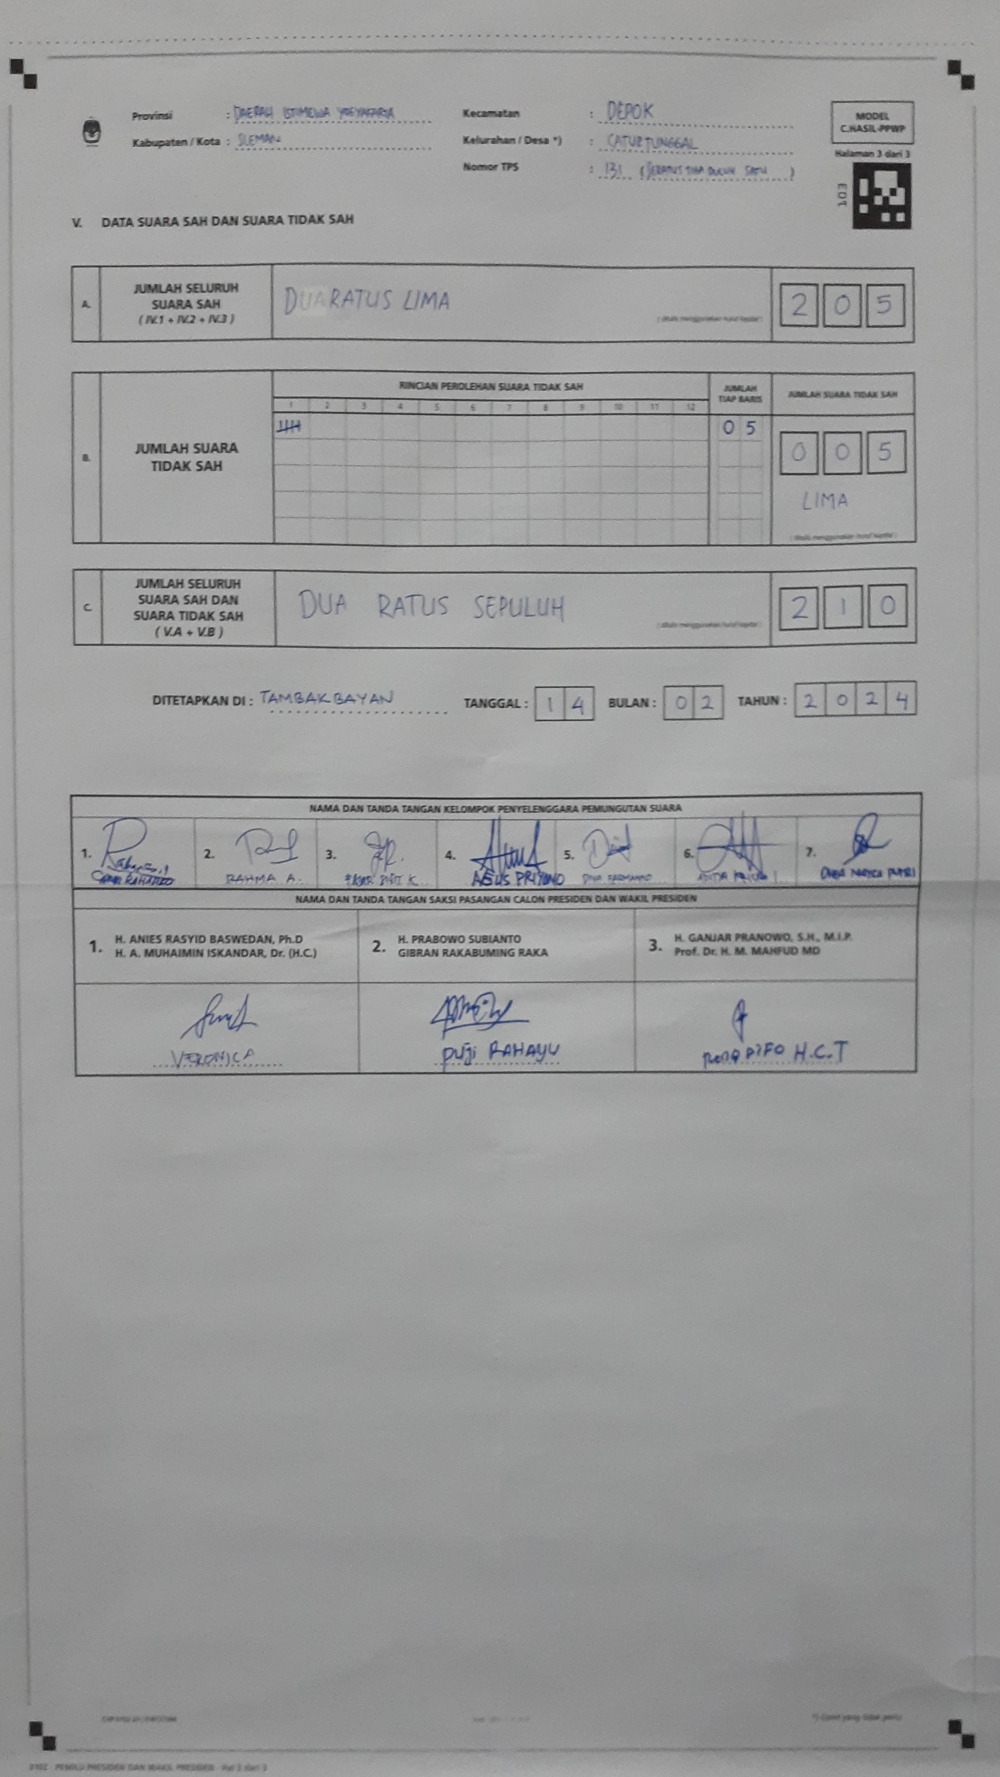 Provinsi : DAERAH ISTIMEWA YOGYAKARTA
Kabupaten / Kota : SLEMAN
Kecamatan : DEPOK
Kelurahan / Desa *) : CATURTUNGGAL
Nomor TPS : 131 (SERATUS TIGA PULUH SATU)
MODEL
C.HASIL-PPWP
Halaman 3 dari 3
103
V. DATA SUARA SAH DAN SUARA TIDAK SAH
A. JUMLAH SELURUH
SUARA SAH
( IV.1 + IV.2 + IV.3 )
DUA RATUS LIMA
( ditulis menggunakan huruf kapital )
2 0 5
B. JUMLAH SUARA
TIDAK SAH
RINCIAN PEROLEHAN SUARA TIDAK SAH
1 2 3 4 5 6 7 8 9 10 11 12
JUMLAH
TIAP BARIS
0 5
JUMLAH SUARA TIDAK SAH
0 0 5
LIMA
( ditulis menggunakan huruf kapital )
C. JUMLAH SELURUH
SUARA SAH DAN
SUARA TIDAK SAH
( V.A + V.B )
DUA RATUS SEPULUH
( ditulis menggunakan huruf kapital )
2 1 0
DITETAPKAN DI : TAMBAKBAYAN TANGGAL : 1 4 BULAN : 0 2 TAHUN : 2 0 2 4
NAMA DAN TANDA TANGAN KELOMPOK PENYELENGGARA PEMUNGUTAN SUARA
1. 2. 3. 4. 5. 6. 7.
RAHMA A. AGUS PRIYONO
NAMA DAN TANDA TANGAN SAKSI PASANGAN CALON PRESIDEN DAN WAKIL PRESIDEN
1. H. ANIES RASYID BASWEDAN, Ph.D
H. A. MUHAIMIN ISKANDAR, Dr. (H.C.)
2. H. PRABOWO SUBIANTO
GIBRAN RAKABUMING RAKA
3. H. GANJAR PRANOWO, S.H., M.I.P.
Prof. Dr. H. M. MAHFUD MD
VERONICA
PUJI RAHAYU
H.C.T
*) Coret yang tidak perlu
PEMILU PRESIDEN DAN WAKIL PRESIDEN - Hal 3 dari 3